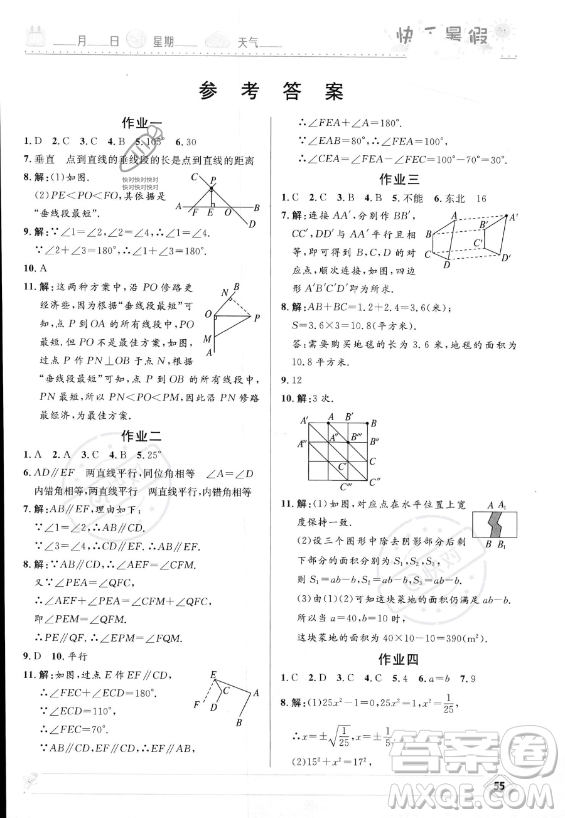 月 日 星期 天气
快乐暑假
参考答案
作业一
1. D 2. C 3. C 4. B 5. 105° 6. 30
7. 垂直 点到直线的垂线段的长是点到直线的距离
8. 解:(1)如图.
(2)PE<PO<FO,其依据是
“垂线段最短”
9. 解:∵∠1=∠2,∠1=∠4,
∴∠2=∠4.
∵∠2+∠3=180°,∴∠3+∠4=180°.
10. A
11. 解:这两种方案中,沿PO修路更
经济些,因为“垂线段最短”可
知,点P到OA的所有线段中PO
最短.但PO不是最佳方案,如
图,作PN⊥OB于点N,由“垂线
段最短”可知,点P到OB的所有线段中,
PN最短,且PN<PO<PM.所以沿PN修路
最经济,为最佳方案.
作业二
1. A 2. A 3. A 4. B 5. 25°
6. AD∥EF 两直线平行,同位角相等 ∠A=∠D
内错角相等,两直线平行 两直线平行,内错角相等
7. 解:AB∥EF.理由如下:
∵∠1=∠2,∴AB∥CD.
∵∠3=∠4,∴CD∥EF.∴AB∥EF.
8. 解:∵AB∥CD,∴∠AEF=∠CFM.
又∵∠PEA=∠QFC,
∴∠AEF+∠PEA=∠CFM+∠QFC,
即∠PEM=∠QFM.
∴PE∥QF.
9. D 10. 平行
11. 解:如图,过点E作EF∥CD,
∴∠FEC+∠ECD=180°.
∵∠ECD=110°,
∴∠FEC=70°.
∵AB∥CD,∴AB∥EF.
∴∠FEA+∠A=180°.
∵∠EAB=80°,∴∠FEA=100°.
∴∠AEC=∠FEA-∠FEC=100°-70°=30°.
作业三
1. C 2. A 3. B 4. B 5. 不能 6. 东北 16
7. 解:连接AA′,分别作BB′,
CC′,DD′与AA′平行且相
等,即可得到B,C,D的对
应点,顺次连接,如图,四边
形A′B′C′D′即为所求.
8. 解:AB+BC=1.2+2.4=3.6(米);
S=3.6×3=10.8(平方米).
答:需要购买地毯的长为3.6米,地毯的面积为
10.8平方米.
9. 12
10. 解:3次.
11. 解:(1)如图,对应点在水平位置上宽
度保持一致.
(2)设三个图形中除去阴影部分后剩
下部分的面积分别为S₁,S₂,S₃,
则S₁=ab-b,S₂=ab-b,S₃=ab-b.
(3)由(1)(2)可知,这块菜地的面积仍满足ab-b,
所以当a=40,b=10时,
这块菜地的面积为40×10-10=390(m²).
作业四
1. C 2. D 3. C 4. A 5. 4 6. a=b 7. 9
8. 解:(1)25x²-1=0,25x²=1,x²=1/25,
∴x=±√(1/25),∴x=±1/5.
(2)15²+x²=17²
55